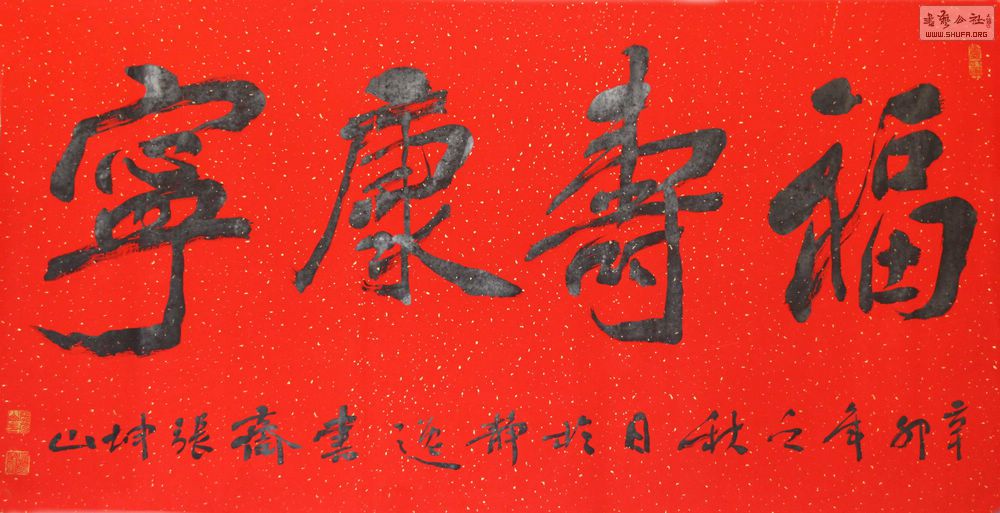 福壽康寧
辛卯年之秋日於靜逸書齋張坤山
书艺公社
WWW.SHUFA.ORG